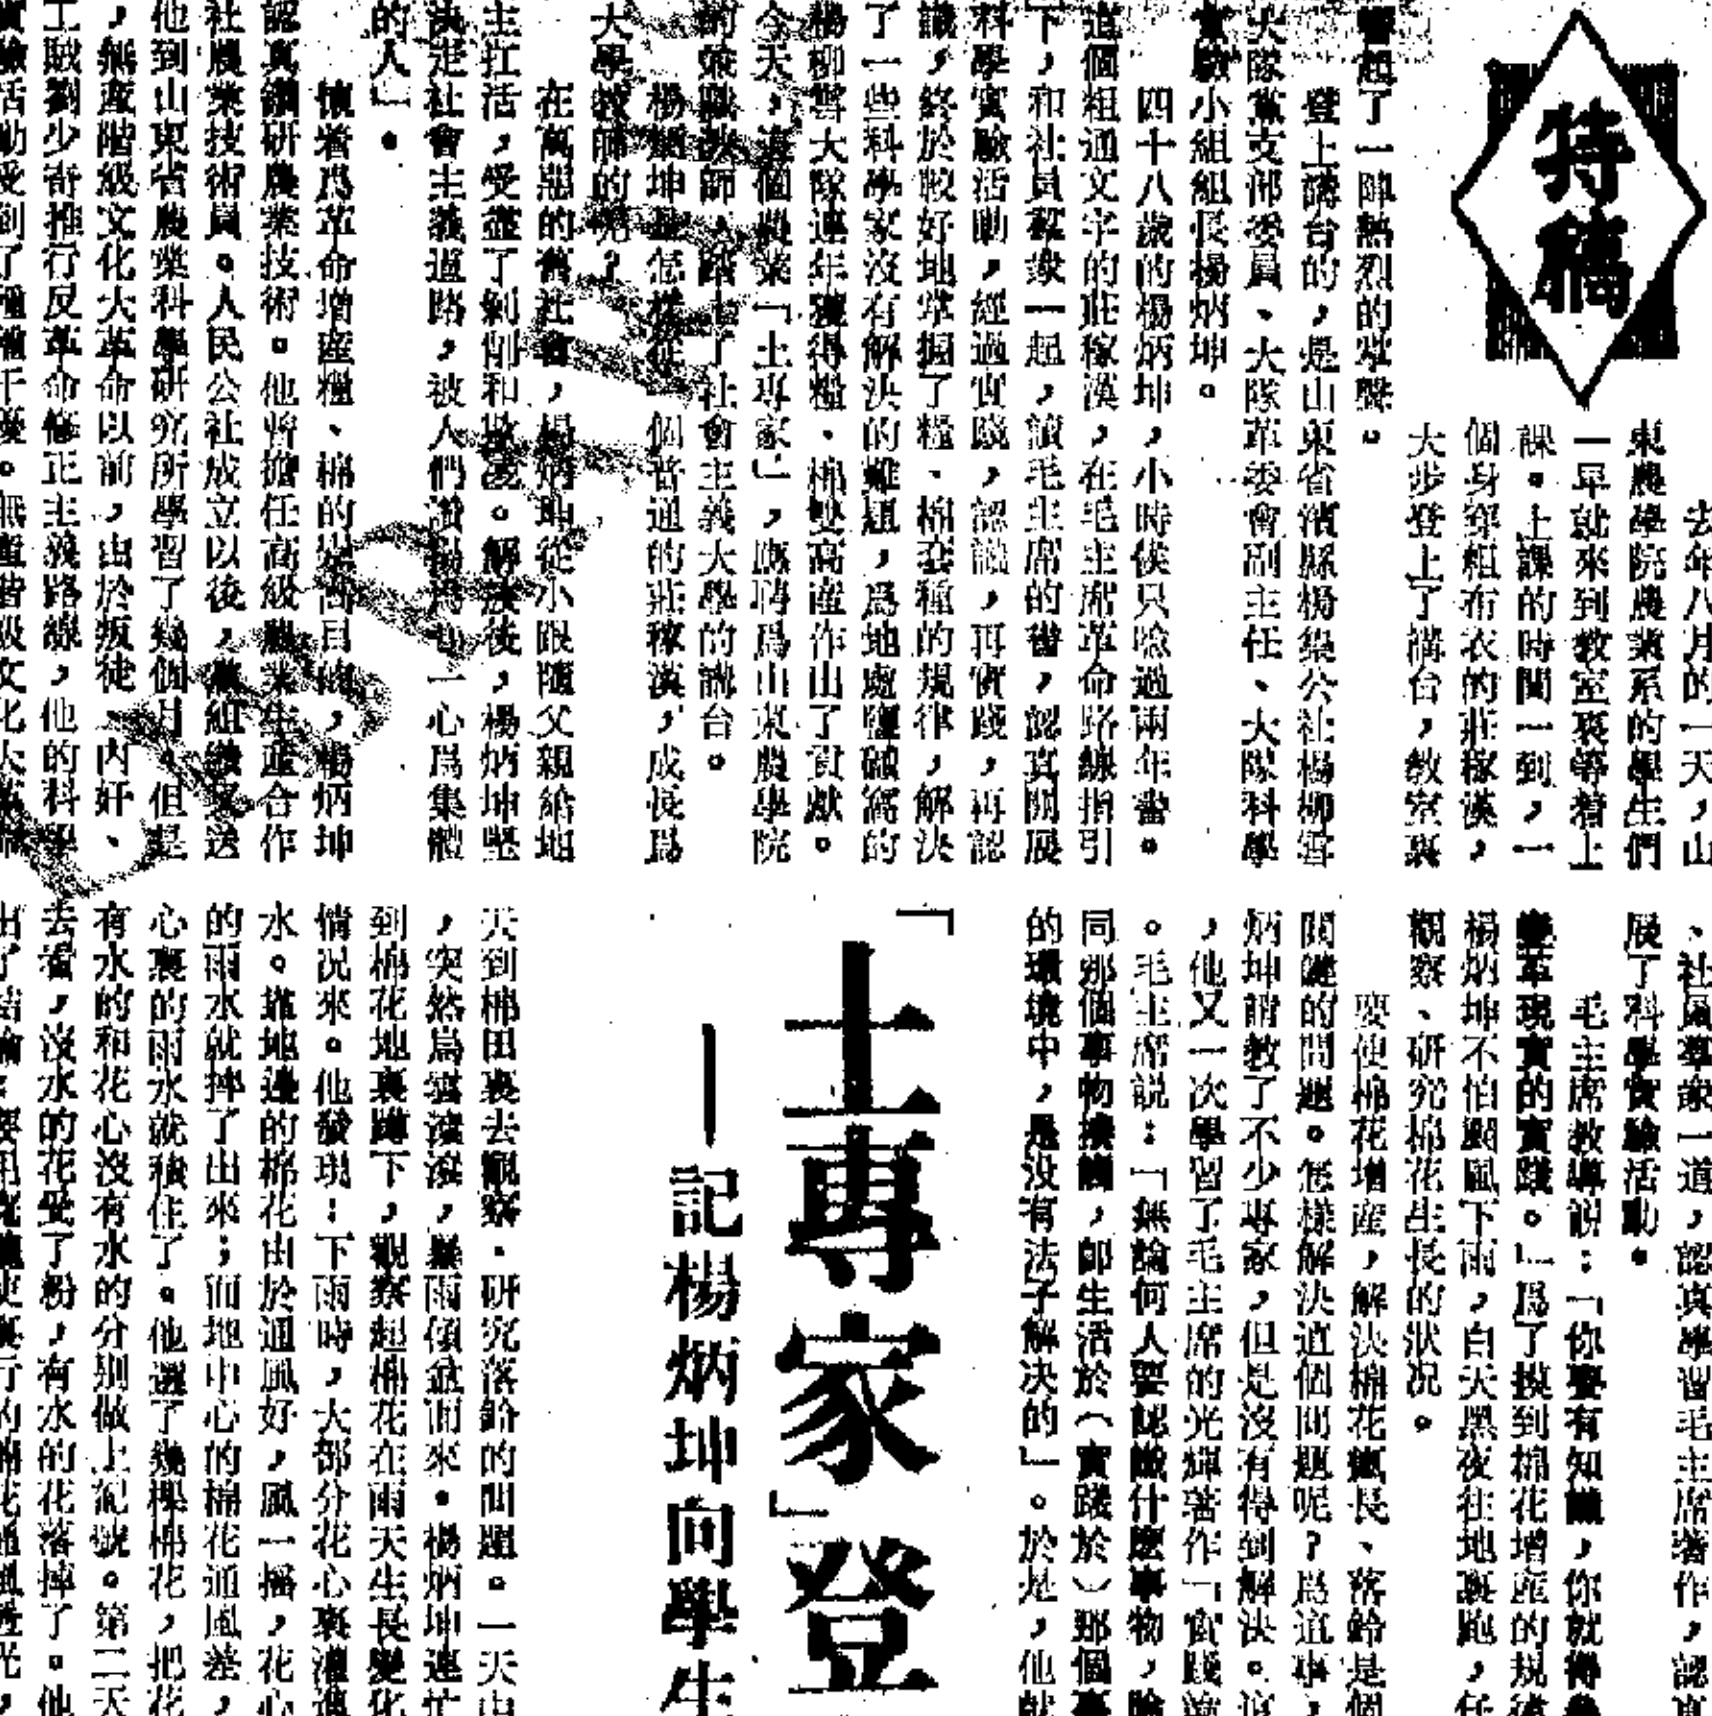 特稿
去年八月的一天，山
東農學院農業系的學生們
一早就來到教室裏等着上
課。上課的時間一到，一
個身穿粗布衣的莊稼漢，
大步登上了講台，教室裏
響起了一陣熱烈的掌聲。
登上講台的，是山東省濱縣楊集公社楊柳雪
大隊黨支部委員、大隊革委會副主任、大隊科學
實驗小組組長楊炳坤。
四十八歲的楊炳坤，小時侯只唸過兩年書。
這個粗通文字的莊稼漢，在毛主席革命路綫指引
下，和社員羣衆一起，讀毛主席的書，認真開展
科學實驗活動，經過實踐，認識，再實踐，再認
識，終於較好地掌握了糧、棉套種的規律，解決
了一些科學家沒有解決的難題，爲地處鹽鹼窩的
楊柳雪大隊連年獲得糧、棉雙高產作出了貢獻。
今天，這個農業「土專家」，應聘爲山東農學院
的兼職教師，踏上了社會主義大學的講台。
楊炳坤是怎樣從一個普通的莊稼漢，成長爲
大學教師的呢？
在萬惡的舊社會，楊炳坤從小跟隨父親給地
主扛活，受盡了剝削和欺凌。解放後，楊炳坤堅
決走社會主義道路，被人們讚揚爲「一心爲集體
的人」。
懷着爲革命增產糧、棉的崇高目的，楊炳坤
認真鑽研農業技術。他曾擔任高級農業生產合作
社農業技術員。人民公社成立以後，黨組織又送
他到山東省農業科學研究所學習了幾個月。但是
，無產階級文化大革命以前，由於叛徒、內奸、
工賊劉少奇推行反革命修正主義路綫，他的科學
實驗活動受到了種種干擾。無產階級文化大革命
、社員羣衆一道，認真學習毛主席著作，認真
展了科學實驗活動。
毛主席教導說：「你要有知識，你就得參
變革現實的實踐。」爲了摸到棉花增產的規律
楊炳坤不怕颳風下雨，白天黑夜往地裏跑，仔
觀察、研究棉花生長的狀况。
要使棉花增產，解決棉花瘋長、落鈴是個
關鍵的問題。怎樣解決這個問題呢？爲這事，
炳坤請教了不少專家，但是沒有得到解決。這
，他又一次學習了毛主席的光輝著作「實踐論
。毛主席説：「無論何人要認識什麽事物，除
同那個事物接觸，即生活於（實踐於）那個事
的環境中，是没有法子解决的」。於是，他就
「土專家」登
——記楊炳坤向學生
天到棉田裏去觀察、研究落鈴的問題。一天中
，突然烏雲滾滾，暴雨傾盆而來。楊炳坤連忙
到棉花地裏蹲下，觀察起棉花在雨天生長變化
情况來。他發現：下雨時，大部分花心裏灌進
水。靠地邊的棉花由於通風好，風一搖，花心
的雨水就掉了出來；而地中心的棉花通風差，
心裏的雨水就積住了。他選了幾棵棉花，把花
有水的和花心沒有水的分别做上記號。第二天
去看，沒水的花受了粉，有水的花落掉了。他
出了結論：要用寬窄